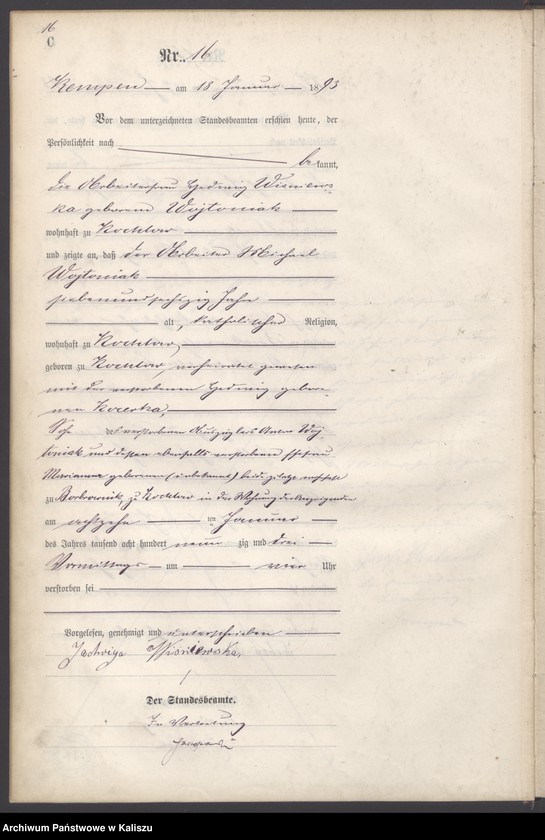 16
C
Nr. 16
Kempen am 18 Januar 1893
Vor dem unterzeichneten Standesbeamten erschien heute, der
Persönlichkeit nach
be kannt,
die Arbeiterfrau Hedwig Wisniews-
ka geborene Wojtoniak
wohnhaft zu Kochlow
und zeigte an, daß der Arbeiter Michael
Wojtoniak
siebenundsechzig Jahre
alt, katholischer Religion,
wohnhaft zu Kochlow,
geboren zu Kochlow, verheirathet gewesen
mit der verstorbenen Hedwig gebore-
nen
Sohn des verstorbenen Auszüglers Anton Woj-
toniak und dessen ebenfalls verstorbenen Ehefrau
Marianna geborenen (unbekannt) beide zuletzt wohnhaft
zu zu Kochlow in der Wohnung der Anzeigenden
am achtzehn ten Januar
des Jahres tausend acht hundert neun zig und drei
Vormittags um vier Uhr
verstorben sei
Vorgelesen, genehmigt und unterschrieben
Jadwiga Wisniewska,
Der Standesbeamte.
In Vertretung
Archiwum Państwowe w Kaliszu